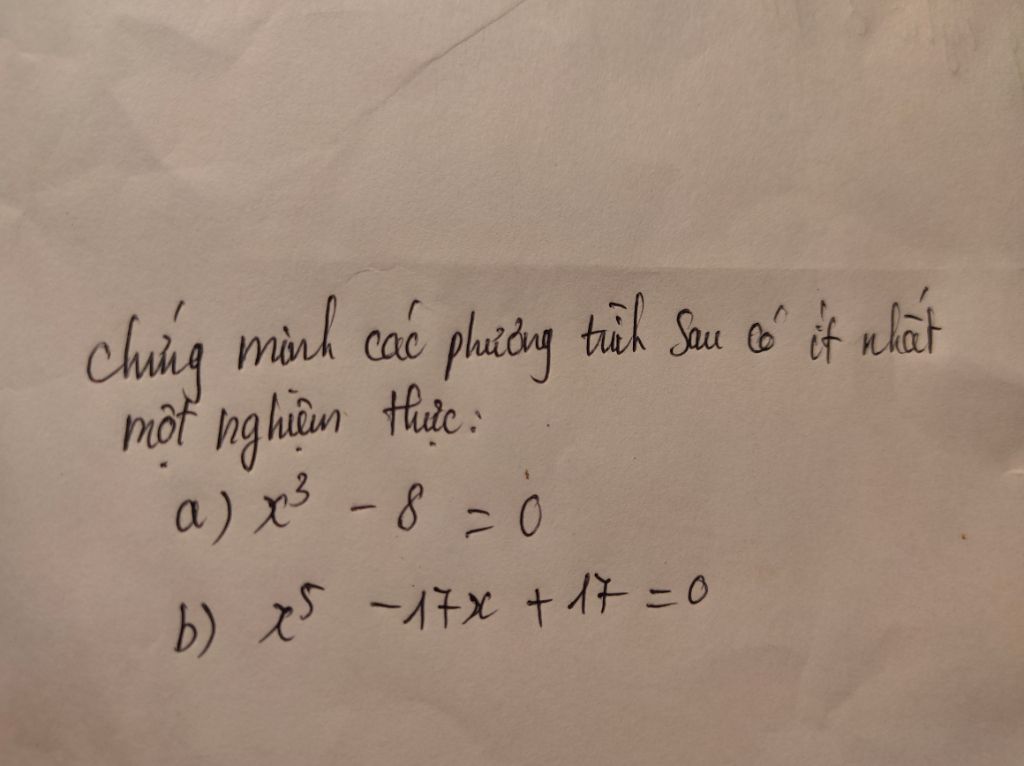 Chứng minh các phương trình sau có ít nhất
một nghiệm thực:
a) x³ - 8 = 0
b) x⁵ - 17x + 17 = 0